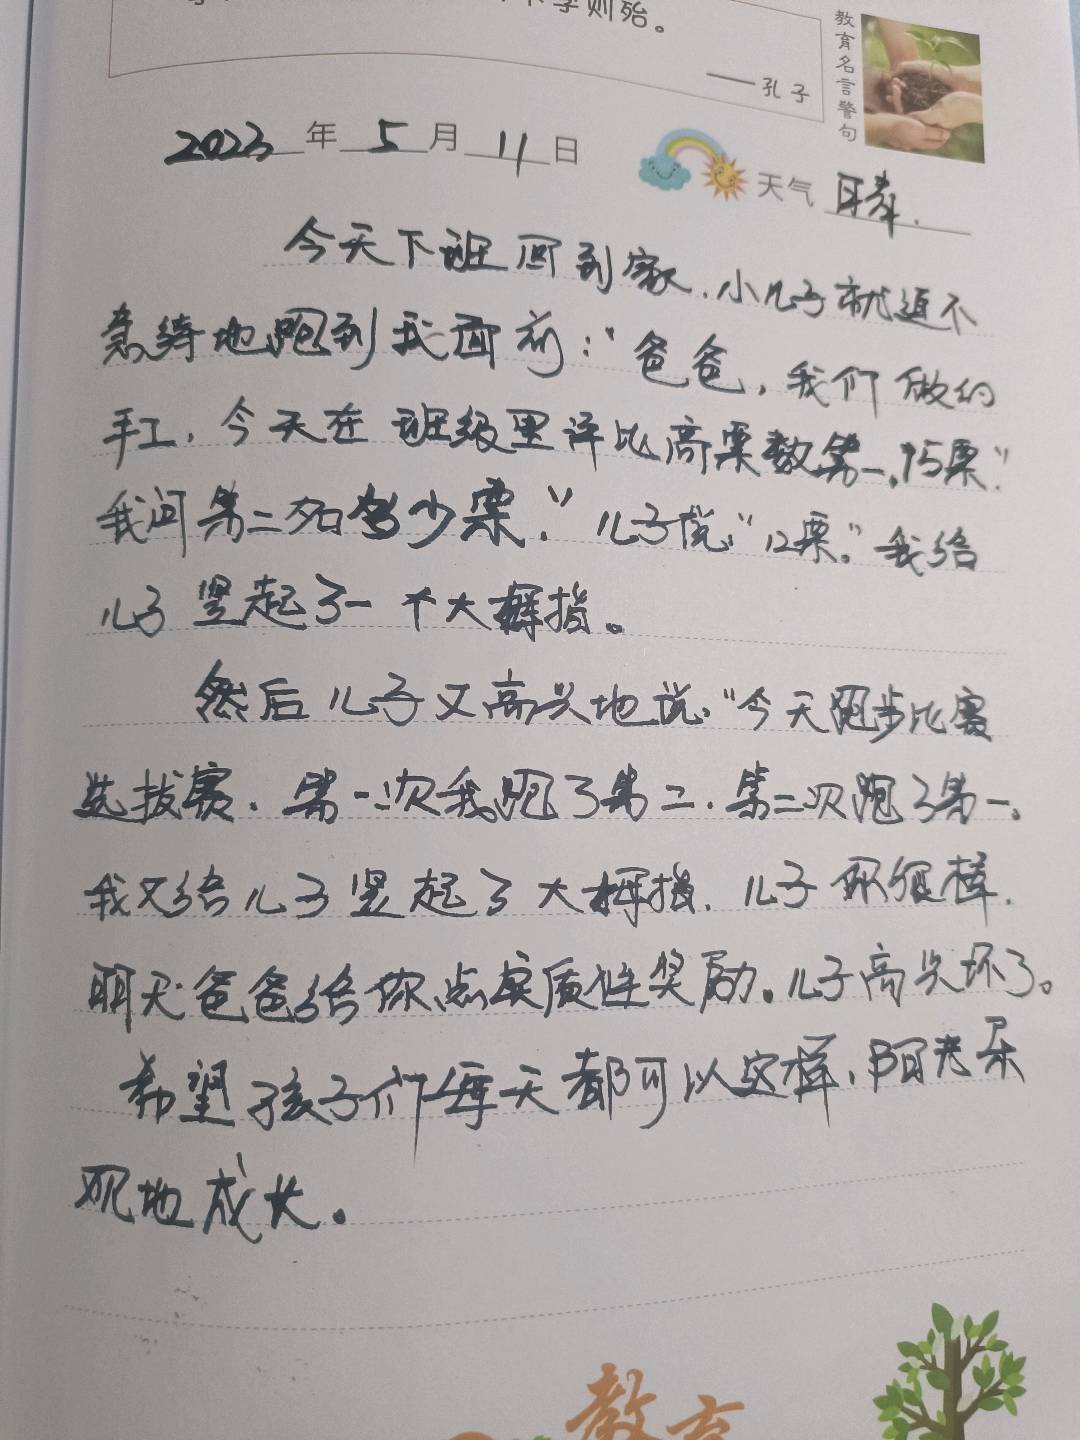 学则殆。
——孔子
教育名言警句
2023年5月11日
天气 晴.
今天下班回到家.小儿子就迫不
急待地跑到我面前:“爸爸,我们做的
手工.今天在班级里评比高票数第一,95票.”
我问第二名多少票.”儿子说:“12票。”我给
儿子竖起了一个大拇指。
然后儿子又高兴地说:“今天跑步比赛
选拔赛.第一次我跑了第二.第二次跑了第一。
我又给儿子竖起了大拇指.儿子你很棒.
明天爸爸给你点实质性奖励。儿子高兴坏了。
希望孩子们每天都可以这样.阳光乐
观地成长。
教育